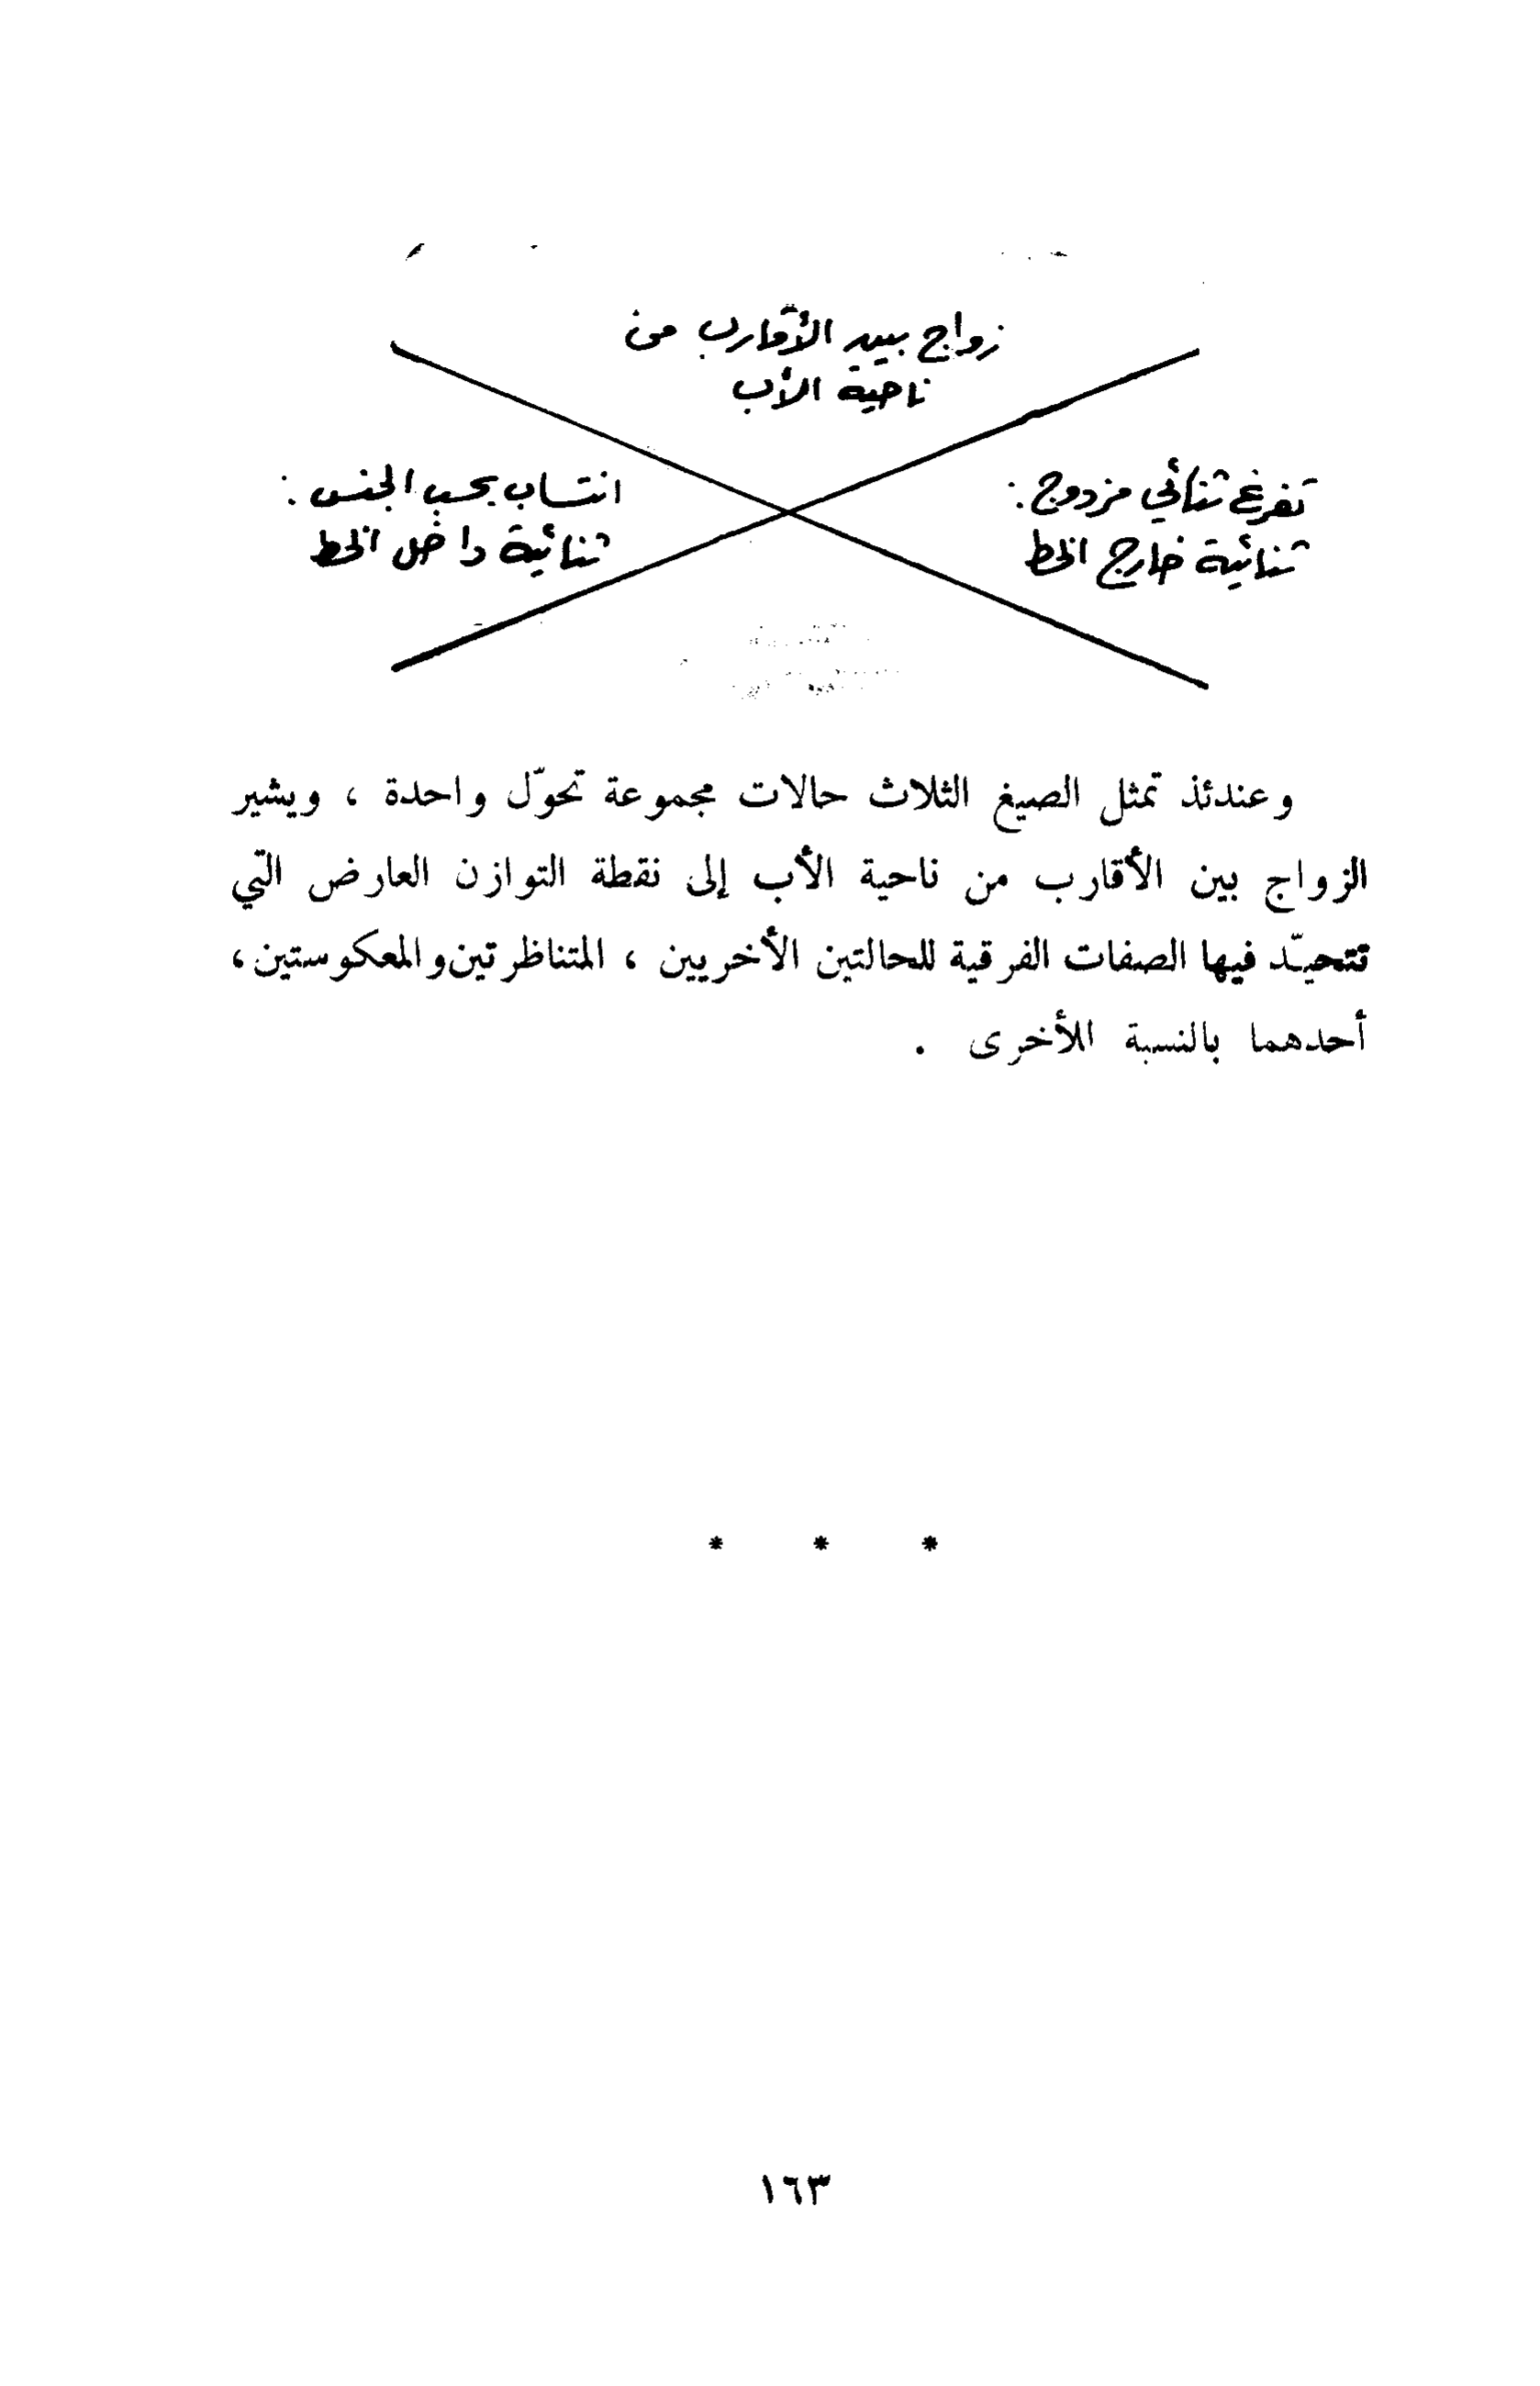 زواج بين الأقارب من
ناحية الأب
تفرع ثنائي مزدوج :
ثنائية خارج الخط
انتساب بحسب الجنس :
ثنائية داخل الخط
وعندئذ تمثل الصيغ الثلاث حالات مجموعة تحوّل واحدة ، ويشير
الزواج بين الأقارب من ناحية الأب إلى نقطة التوازن العارض التي
تتحيّد فيها الصفات الفرقية للحالتين الأخريين ، المتناظرتين والمعكوستين ،
أحدهما بالنسبة للأخرى .
* * *
١٦٣